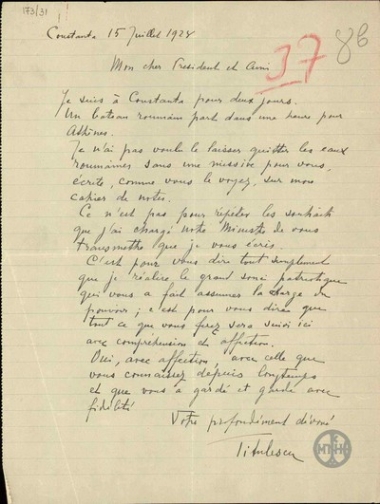 173/31
Constanta 15 Juillet 1928
37
86
Mon cher President et Ami
Je suis à Constanta pour deux jours.
Un bateau roumain part dans une heure pour
Athènes.
Je n'ai pas voulu le laisser quitter les eaux
roumaines sans une missive pour vous,
écrite, comme vous le voyez, sur mon
cahier de notes.
Ce n'est pas pour répéter les souhaits
que j'ai chargé notre Ministre de vous
transmettre que je vous écris.
C'est pour vous dire tout simplement
que je réalise le grand souci patriotique
qui vous a fait assumer la charge du
pouvoir; c'est pour vous dire que
tout ce que vous ferez sera suivi ici
avec compréhension et affection.
Oui, avec affection, avec celle que
vous connaissez depuis longtemps
et que vous a gardé et garde avec
fidélité
Votre profondément dévoué
Titulescu